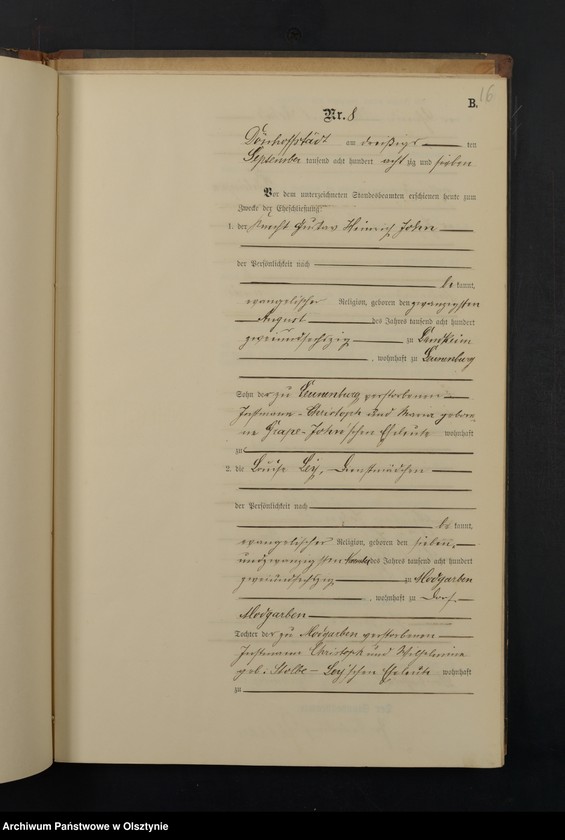 16
B.
Nr. 8
Dönhoffstädt am dreißigs ten
September tausend acht hundert acht zig und sieben
Vor dem unterzeichneten Standesbeamten erschienen heute zum
Zwecke der Eheschließung:
1. der Knecht Gustav Heinrich
der Persönlichkeit nach
be kannt,
evangelischer Religion, geboren den zwanzigsten
August des Jahres tausend acht hundert
zweiundsechszig zu
, wohnhaft zu
Sohn der zu verstorbenen
Instmann Christoph und Maria gebore-
ne Eheleute wohnhaft
zu
2. die Louise Ley, Dienstmädchen
der Persönlichkeit nach
be kannt,
evangelischer Religion, geboren den sieben-
undzwanzigsten des Jahres tausend acht hundert
zweiundsechszig zu Modgarben
, wohnhaft zu Dorf
Modgarben
Tochter der zu Modgarben verstorbenen
Instmann Christoph und Wilhelmine
geb. Stolbe - Ley'schen Eheleute wohnhaft
zu
Archiwum Państwowe w Olsztynie